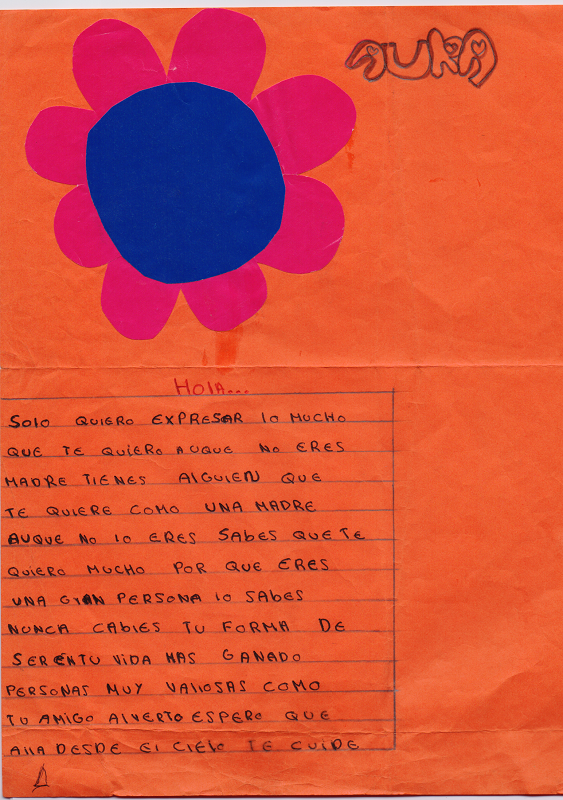 AUKA
HOlA...
SOlO QUIERO EXPRESAR lO MUCHO
QUE TE QUIERO AUQUE NO ERES
MADRE TIENES ALGUIEN QUE
TE QUIERE COMO UNA MADRE
AUQUE NO lO ERES SABES QUE TE
QUIERO MUCHO POR QUE ERES
UNA GRAN PERSONA lO SABES
NUNCA CABIES TU FORMA DE
SER EN TU VIDA HAS GANADO
PERSONAS MUY VAlIOSAS COMO
TU AMIGO AlVERTO ESPERO QUE
AllA DESDE El CIElO TE CUIDE